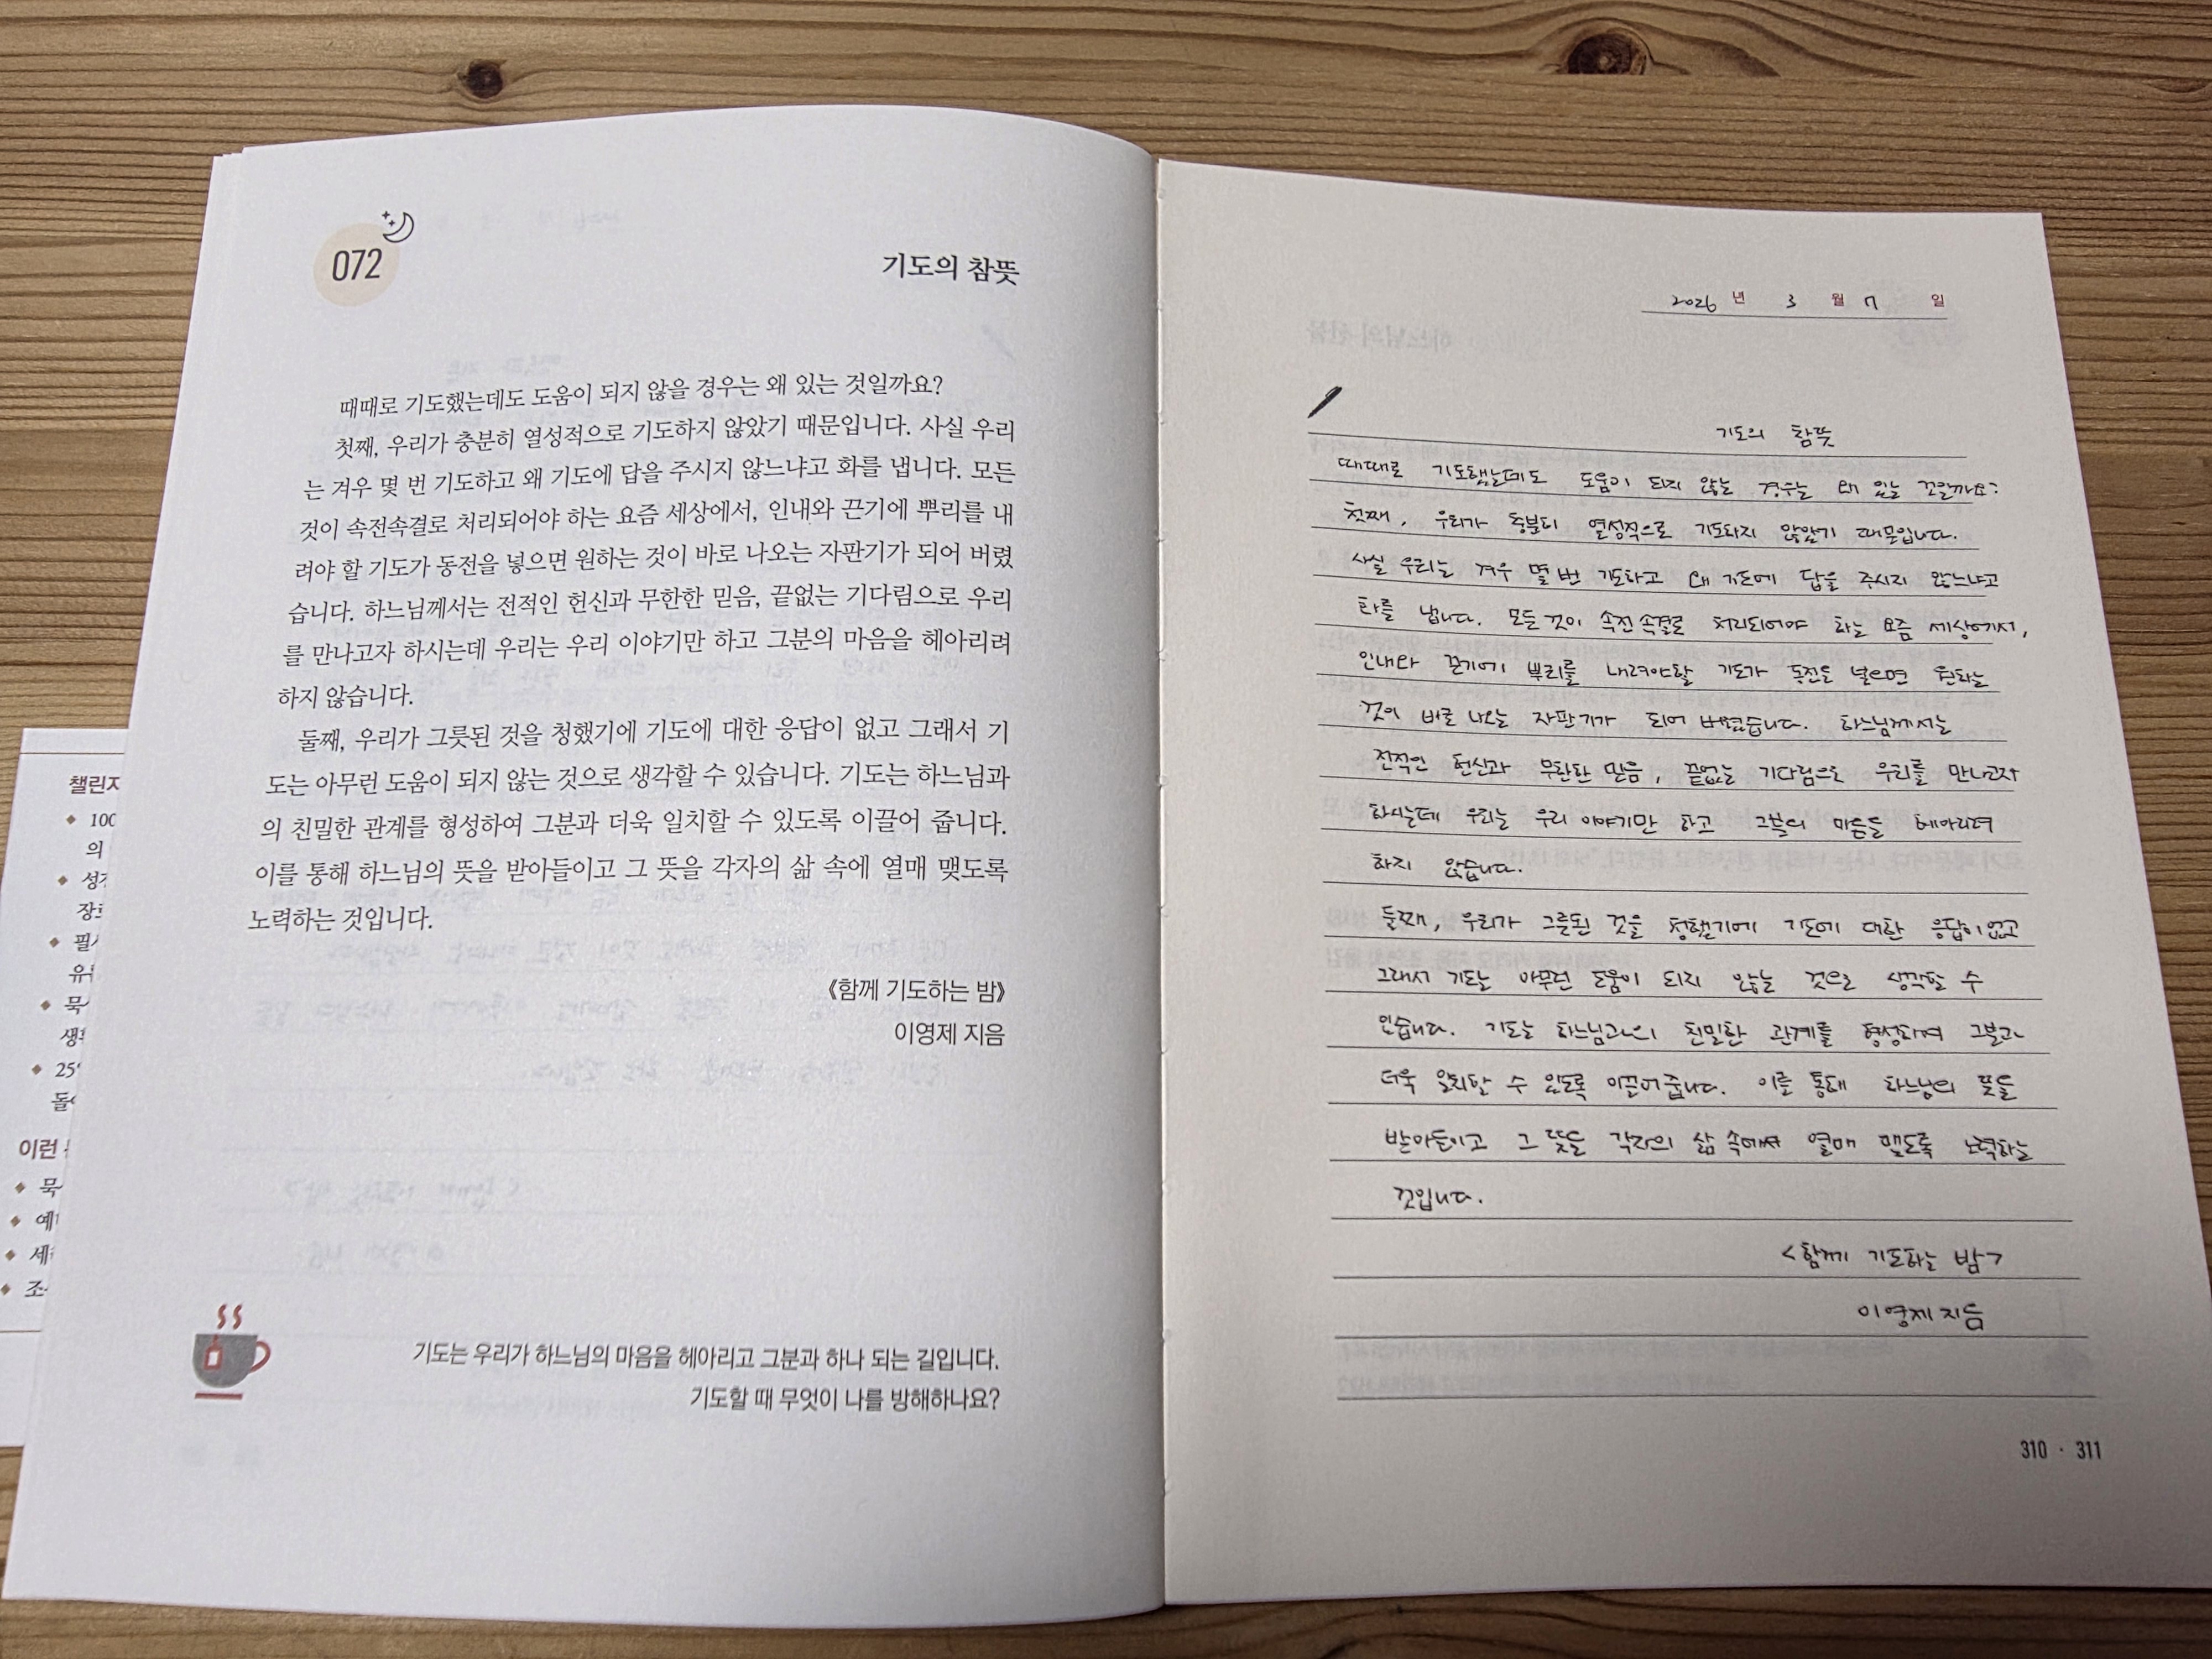 072
기도의 참뜻
때때로 기도했는데도 도움이 되지 않을 경우는 왜 있는 것일까요?
첫째, 우리가 충분히 열성적으로 기도하지 않았기 때문입니다. 사실 우리
는 겨우 몇 번 기도하고 왜 기도에 답을 주시지 않느냐고 화를 냅니다. 모든
것이 속전속결로 처리되어야 하는 요즘 세상에서, 인내와 끈기에 뿌리를 내
려야 할 기도가 동전을 넣으면 원하는 것이 바로 나오는 자판기가 되어 버렸
습니다. 하느님께서는 전적인 헌신과 무한한 믿음, 끝없는 기다림으로 우리
를 만나고자 하시는데 우리는 우리 이야기만 하고 그분의 마음을 헤아리려
하지 않습니다.
둘째, 우리가 그릇된 것을 청했기에 기도에 대한 응답이 없고 그래서 기
도는 아무런 도움이 되지 않는 것으로 생각할 수 있습니다. 기도는 하느님과
의 친밀한 관계를 형성하여 그분과 더욱 일치할 수 있도록 이끌어 줍니다.
이를 통해 하느님의 뜻을 받아들이고 그 뜻을 각자의 삶 속에 열매 맺도록
노력하는 것입니다.
《함께 기도하는 밤》
이영제 지음
기도는 우리가 하느님의 마음을 헤아리고 그분과 하나 되는 길입니다.
기도할 때 무엇이 나를 방해하나요?
2026 년 3 월 7 일
기도의 참뜻
때때로 기도했는데도 도움이 되지 않는 경우는 왜 있는 것일까요?
첫째, 우리가 충분히 열성적으로 기도하지 않았기 때문입니다.
사실 우리는 겨우 몇 번 기도하고 왜 기도에 답을 주시지 않느냐고
화를 냅니다. 모든 것이 속전속결로 처리되어야 하는 요즘 세상에서,
인내와 끈기에 뿌리를 내려야할 기도가 동전을 넣으면 원하는
것이 바로 나오는 자판기가 되어 버렸습니다. 하느님께서는
전적인 헌신과 무한한 믿음, 끝없는 기다림으로 우리를 만나고자
하시는데 우리는 우리 이야기만 하고 그분의 마음을 헤아리려
하지 않습니다.
둘째, 우리가 그릇된 것을 청했기에 기도에 대한 응답이 없고
그래서 기도는 아무런 도움이 되지 않는 것으로 생각할 수
있습니다. 기도는 하느님과의 친밀한 관계를 형성하여 그분과
더욱 일치할 수 있도록 이끌어 줍니다. 이를 통해 하느님의 뜻을
받아들이고 그 뜻을 각자의 삶 속에서 열매 맺도록 노력하는
것입니다.
<함께 기도하는 밤>
이영제 지음
310 · 311
챌린지
100
의
이런